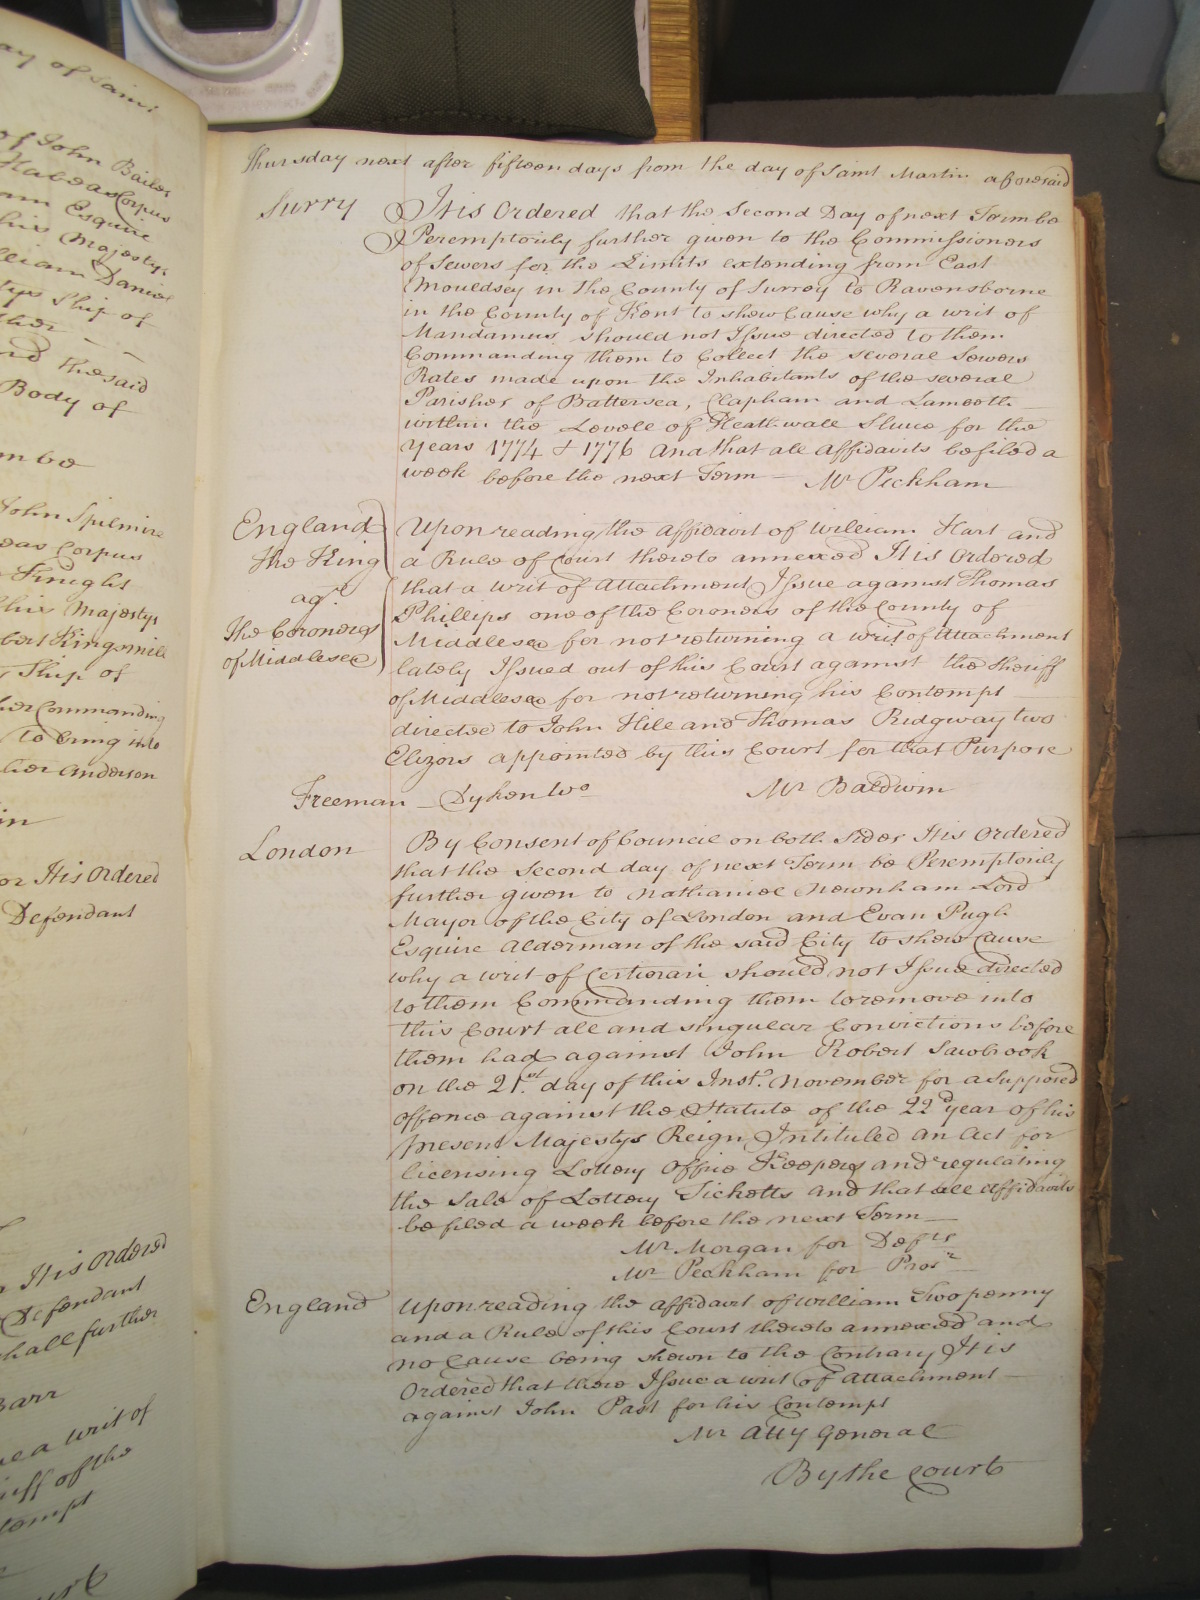 ay of Saint
of John Bailes
Habeas Corpus
am Esquire
his Majestys
lliam Daniel
tys Ship of
ther
rd the said
Body of
m be
John Spilmire
eas Corpus
Knight
his Majestys
bert Kingsmill
Ship of
her Commanding
to bring into
her Anderson
in
or It is Ordered
Defendant
It is Ordered
Defendant
shall further
Barr
ue a writ of
riff of the
tempt
ourt
Thursday next after fifteen days from the day of Saint Martin aforesaid
Surry It is Ordered that the Second Day of next Term be
Peremptorily further given to the Commissioners
of Sewers for the Limits extending from East
Mouldsey in the County of Surrey to Ravensborne
in the County of Kent to shew Cause why a writ of
Mandamus should not Issue directed to them
Commanding them to Collect the several Sewers
Rates made upon the Inhabitants of the several
Parishes of Battersea, Clapham and Lambeth
within the Levele of Heathwall Sluice for the
Years 1774 & 1776 And that all Affidavits be filed a
week before the next Term – Mr Peckham
England Upon reading the Affidavit of William Hart and
the King a Rule of Court thereto annexed It is Ordered
agt that a writ of Attachment Issue against Thomas
Phillips one of the Coroners of the County of
The Coroners Middlesex for not returning a writ of Attachment
of Middlesex lately Issued out of his Court against the Sheriff
of Middlesex for not returning his Contempt
directed to John Hill and Thomas Ridgway two
Elizors appointed by this Court for that Purpose
Freeman – Dyken Wo Mr Baldwin
London By Consent of Council on both Sides It is Ordered
that the Second day of next Term be Peremptorily
further given to Nathaniel Newnham Lord
Mayor of the City of London and Evan Pugh
Esquire Alderman of the said City to shew Cause
why a writ of Certiorari should not Issue directed
to them Commanding them to remove into
this Court all and singular Convictions before
them had against John Robert Sawbrook
on the 21st day of this Inst. November for a Supposed
offence against the Statute of the 22d year of his
present Majestys Reign Intituled an Act for
licensing Lottery Office Keepers and regulating
the Sale of Lottery Ticketts and that all Affidavits
be filed a week before the next Term –
Mr Morgan for Defts
Mr Peckham for Prosr
England Upon reading the affidavit of William Twopenny
and a Rule of this Court thereto annexed and
no Cause being shewn to the Contrary It is
Ordered that there Issue a writ of Attachment
against John Past for his Contempt
Mr Atty General
By the Court